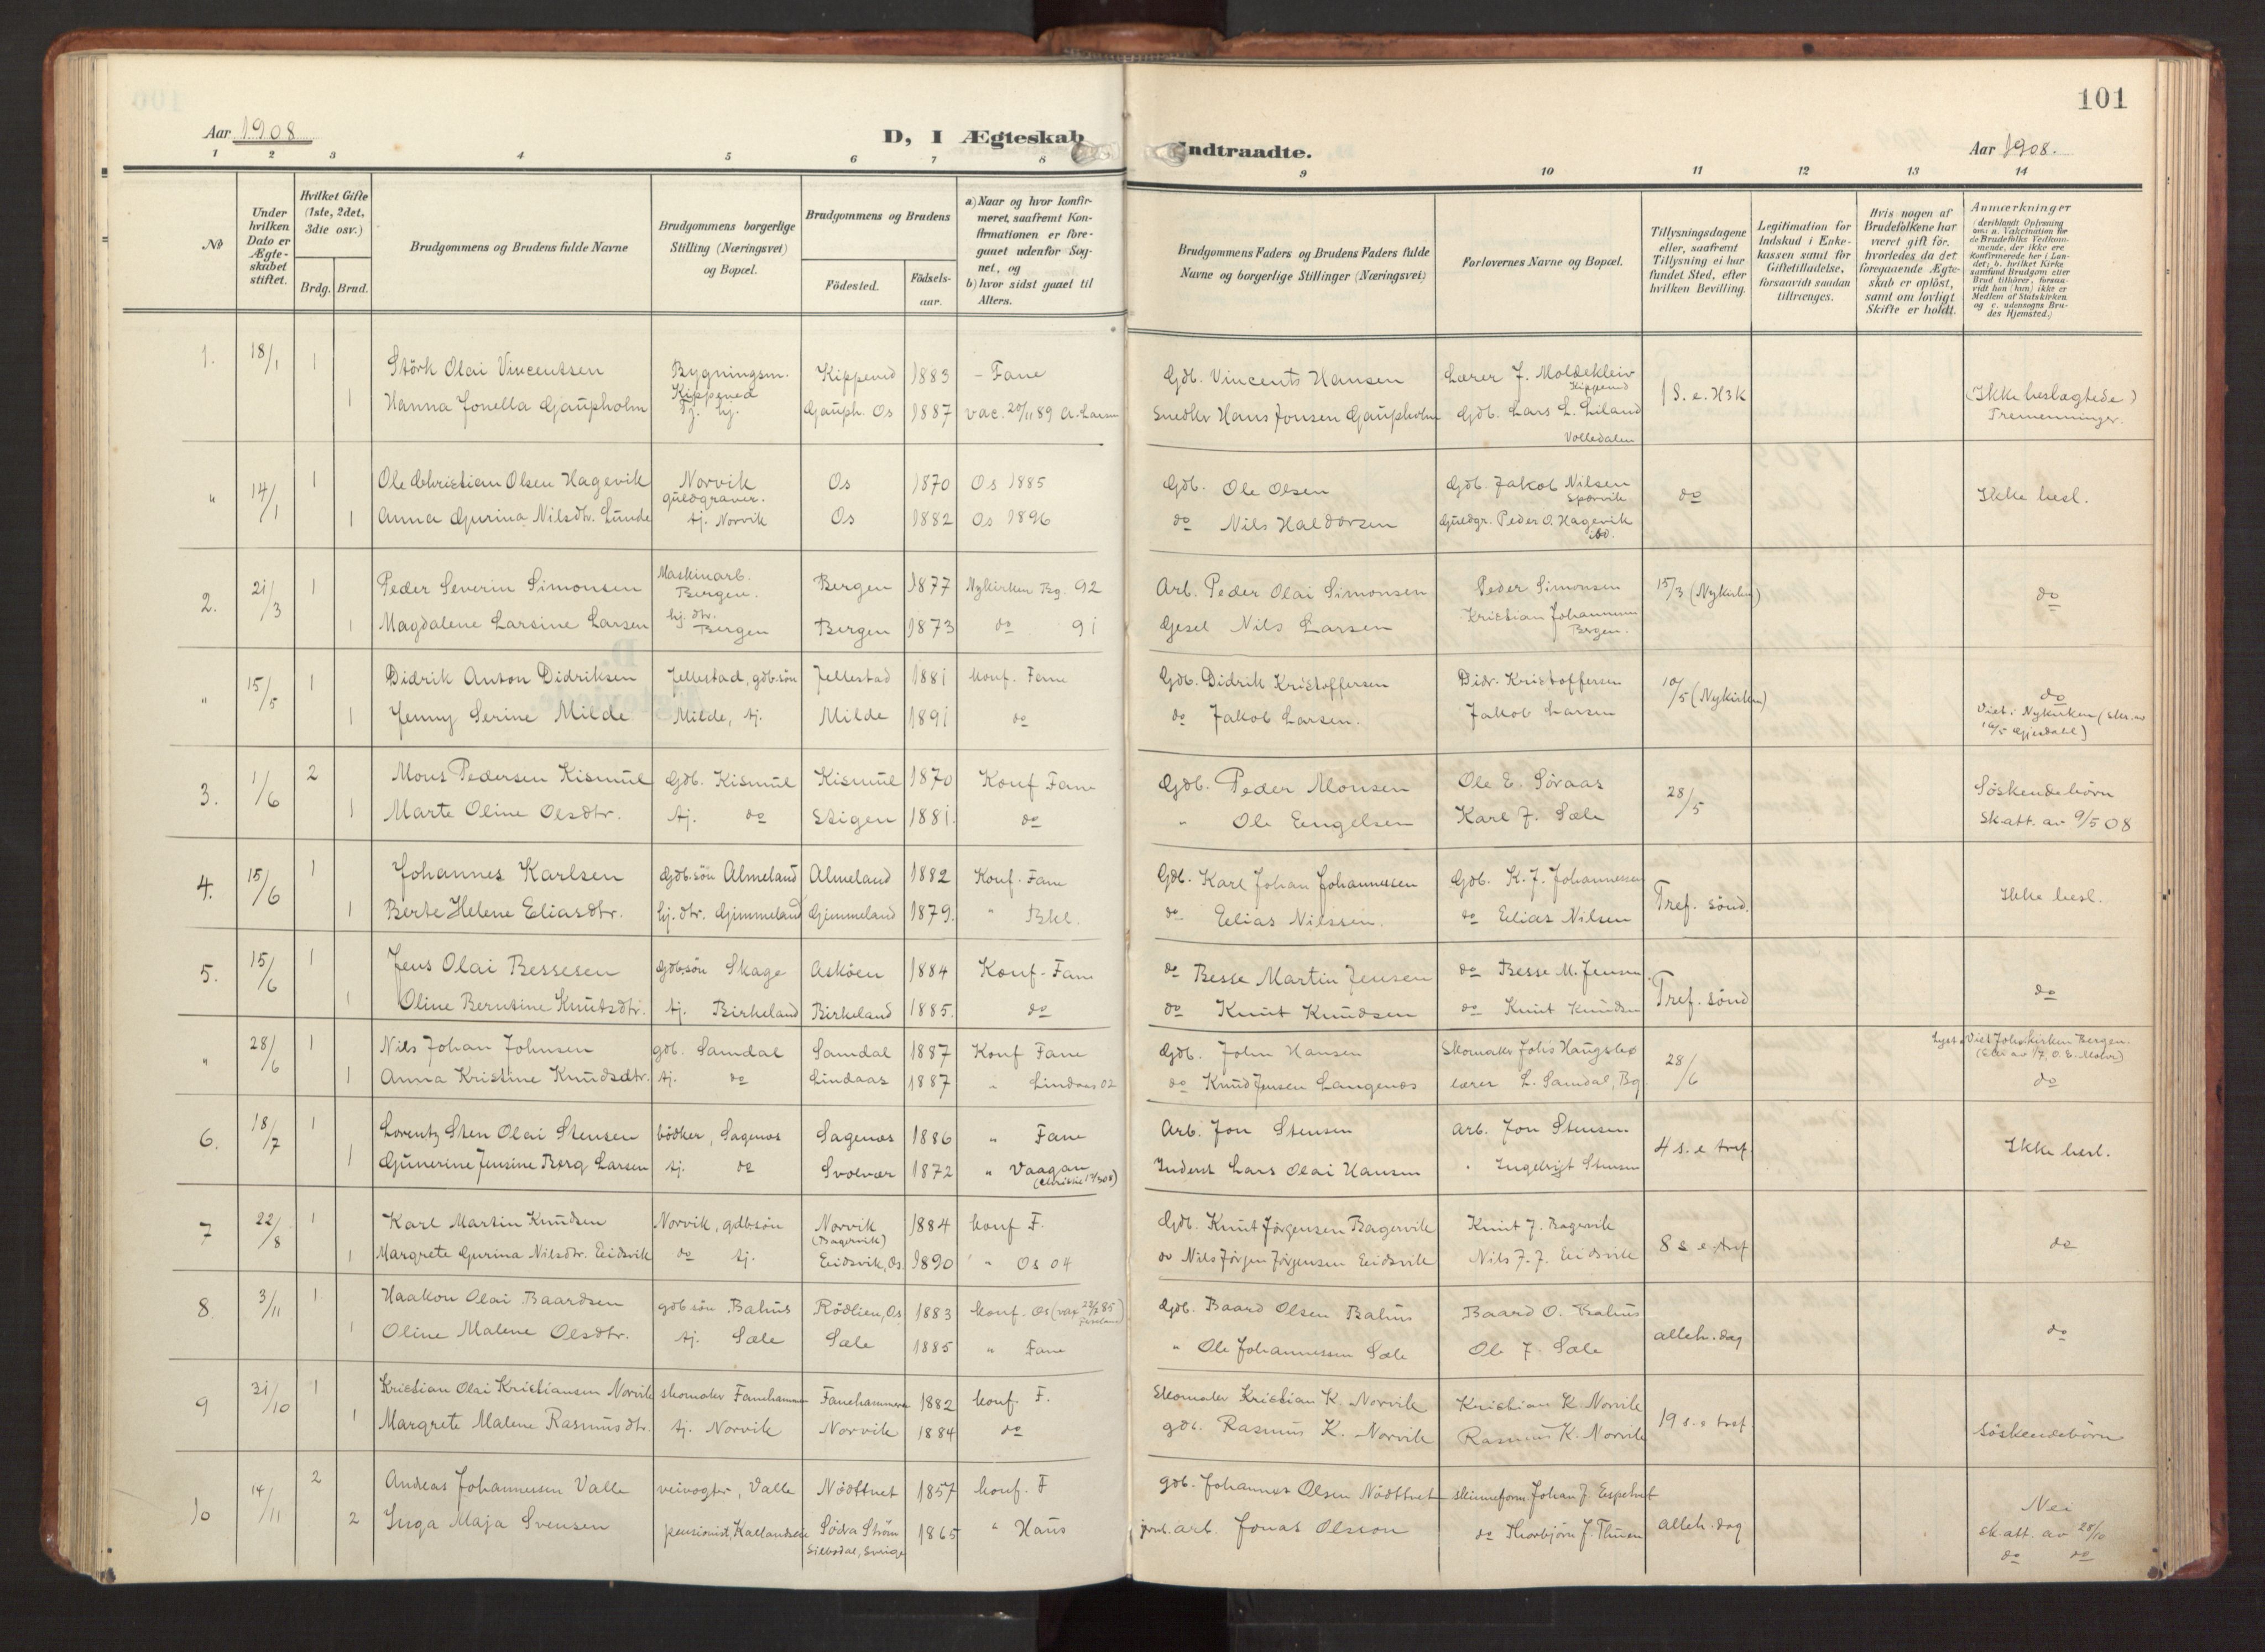 101
Aar 1908
D, I Ægteskab Indtraadte.
Aar 1908.
1 2 3 4 5 6 7 8 9 10 11 12 13 14
No
Under hvilken Dato er Ægte-skabet stiftet.
Hvilket Gifte (1ste, 2det, 3die osv.)
Brdg. Brud.
Brudgommens og Brudens fulde Navne
Brudgommens borgerlige Stilling (Næringsvei) og Bopæl.
Brudgommens og Brudens
Födested.
Födsels-aar.
a) Naar og hvor konfir-meret, saafremt Kon-firmationen er fore-gaaet udenfor Sog-net, og
b) hvor sidst gaaet til Alters.
Brudgommens Faders og Brudens Faders fulde Navne og borgerlige Stillinger (Næringsvei)
Forlovernes Navne og Bopæl.
Tillysningsdagene eller, saafremt Tillysning ei har fundet Sted, efter hvilken Bevilling.
Legitimation for Indskud i Enke-kassen samt for Giftetilladelse, forsaavidt saadan tiltrænges.
Hvis nogen af Brudefolkene har været gift för, hvorledes da det foregaaende Ægte-skab er oplöst, samt om lovligt Skifte er holdt.
Anmærkninger
(deriblandt Oplysning om: a. Vaccination for de Brudefolks Vedkom-mende, der ikke ere konfirmerede her i Lan-det; b. hvilket Kirke samfund Brudgom eller Brud tilhörer, forsaa-vidt han (hun) ikke er Medlem af Statskirken og c. udensogns Bru-des Hjemsted.)
1. 18/1 1 Störk Olai Vincentsen Bygningsm. Kippeved Kippeved 1883 - Fane Gdb. Vincents Hansen Lærer J. Moldekleiv Kippeved 1 S. e. H3K (Ikke beslægtede)
1 Hanna Jonella Gaupholm Tj. hj. Gauph. Os 1887 vac. 20/11 89 A. Larsen Snedker Hans Jonsen Gaupholm Gdb. Lars L. Liland Volledalen Tremenninger.
" 14/1 1 Ole Christian Olsen Hagevik Norvik guldgraver. Os 1870 Os 1885 Gdb. Ole Olsen Gdb. Jakob Nilsen Sporvik do Ikke besl.
1 Anna Gurina Nilsdtr. Lunde tj. Norvik Os 1882 Os 1896 do Nils Haldorsen Guldgr. Peder O. Hagevik ibd.
2. 21/3 1 Peder Severin Simonsen Maskinarb. Bergen. Bergen 1877 Nykirken Bg. 92 Arb. Peder Olai Simonsen Peder Simonsen 15/3 (Nykirken) do
1 Magdalene Larsine Larsen hj. dtr. Bergen Bergen 1873 do 91 Gesel Nils Larsen Kristian Johannesen Bergen.
" 15/5 1 Didrik Anton Didriksen Jellestad, gdb.sön Jellestad 1881 konf. Fane Gdb. Didrik Kristoffersen Didr. Kristoffersen 10/5 (Nykirken) do
1 Jenny Serine Milde Milde, tj. Milde 1891 do do Jakob Larsen. Jakob Larsen Viet i Nykirken
3. 1/6 2 Mons Pedersen Kismul Gdb. Kismul Kismul 1870 Konf Fane Gdb. Peder Monsen Ole E. Søraas 28/5 Söskendebörn
1 Marte Oline Olsdtr. tj. do Stigen 1881. do " Ole Engelsen Karl J. Sæle Sk.att. av 9/5 08
4. 15/6 1 Johannes Karlsen Gdb.sön Almeland Almeland 1882 Konf. Fane Gdb. Karl Johan Johannessen Gdb. K. J. Johannessen Tref. sönd. Ikke besl.
1 Berte Helene Eliasdtr. hj. dtr. Gjimmeland Gjimmeland 1879. " Bkl. do Elias Nilssen. do Elias Nilsen
5. 15/6 1 Jens Olai Bessesen Gdbsön Skage Asköen 1884 Konf. Fane do Besse Martin Jensen do Besse M. Jensen Tref. sönd do
1 Oline Berntine Knutsdtr. tj. Birkeland Birkeland 1885. do do Knut Knudsen do Knut Knudsen
" 28/6 1 Nils Johan Johnsen gdb. Samdal Samdal 1887 Konf Fane Gdb. John Hansen Skomaker Johs Haugsbø 28/6 Lyst o. Viet Johs.kirken Bergen.
1 Anna Kristine Knudsdtr. tj. do Lindaas 1887 " Lindaas 02 do Knud Jensen Langenæs lærer L. Samdal, Bg. do
6. 18/7 1 Lorentz Sten Olai Stensen bödker, Sagenæs Sagenæs 1886 " Fane Arb. Jon Stensen arb. Jon Stensen 4 s. e tref. Ikke besl.
1 Gunerine Jensine Berg Larsen tj. do Svolvær 1872 " Vaagan Inderst Lars Olai Hansen " Ingebrigt Stensen
7 22/8 1 Karl Martin Knudsen Norvik, gdbsön Norvik (Bagervik) 1884 konf F. Gdb. Knut Jørgensen Bagervik Knut J. Bagervik 8 s. e. tref do
1 Margrete Gurina Nilsdtr. Eidsvik do tj. Eidsvik, Os. 1890 " Os 04 do Nils Jörgen Jörgensen Eidsvik Nils J. J. Eidsvik
8. 3/11 1 Haakon Olai Baardsen gdbsön Bahus Rödlien, Os 1883 konf. Os Gdb. Baard Olsen Bahus Baard O. Bahus alleh. dag do
1 Oline Malene Olsdtr. tj. Sæle Sæle 1885 " Fane " Ole Johannessen Sæle Ole J. Sæle
9 31/10 1 Kristian Olai Kristiansen Norvik skomaker Fanehammer Fanehammeren 1882 konf. F. Skomaker Kristian K. Norvik Kristian K. Norvik 19 s. e tref. Söskendebörn
1 Margrete Malene Rasmusdtr. tj. Norvik Norvik 1884 do gdb. Rasmus K. Norvik Rasmus K. Norvik
10 14/11 2 Andreas Johannessen Valle veivogter, Valle Nödttvet 1857 konf. F gdb. Johannes Olsen Nödttvet skinneform. Johan J. Espetvet alleh. dag Nei
2 Inga Maja Svensen pensionist, Södra Ström Silbodal, Sverige 1865 " Haus arb. Jonas Olsson do Thorbjörn J. sk. att. av 28/10
do do